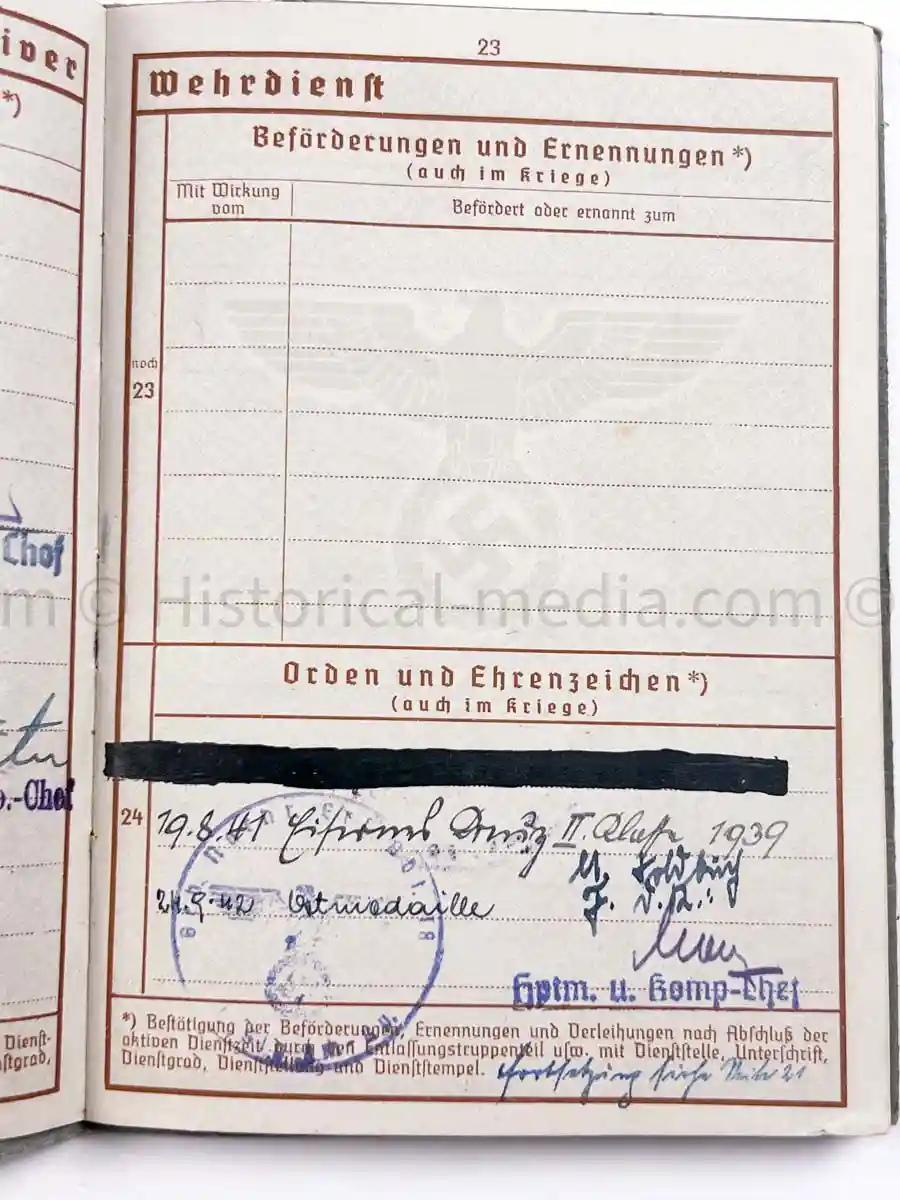 iver
23
*)
Wehrdienst
Beförderungen und Ernennungen *)
(auch im Kriege)
Mit Wirkung vom
Befördert oder ernannt zum
noch
23
Chef
m © Historical-media.com ©
Orden und Ehrenzeichen *)
(auch im Kriege)
.-Chef
24
19.8.41 Eisernes Kreuz II. Klasse 1939
lt. Soldbuch
24.9.42 Ostmedaille
F. d. R.:
Hptm. u. Komp-Chef
*) Bestätigung der Beförderungen, Ernennungen und Verleihungen nach Abschluß der
aktiven Dienstzeit durch den Entlassungstruppenteil usw. mit Dienststelle, Unterschrift,
Dienstgrad, Dienststellung und Dienststempel.
Fortsetzung siehe Seite 21
Dienst-